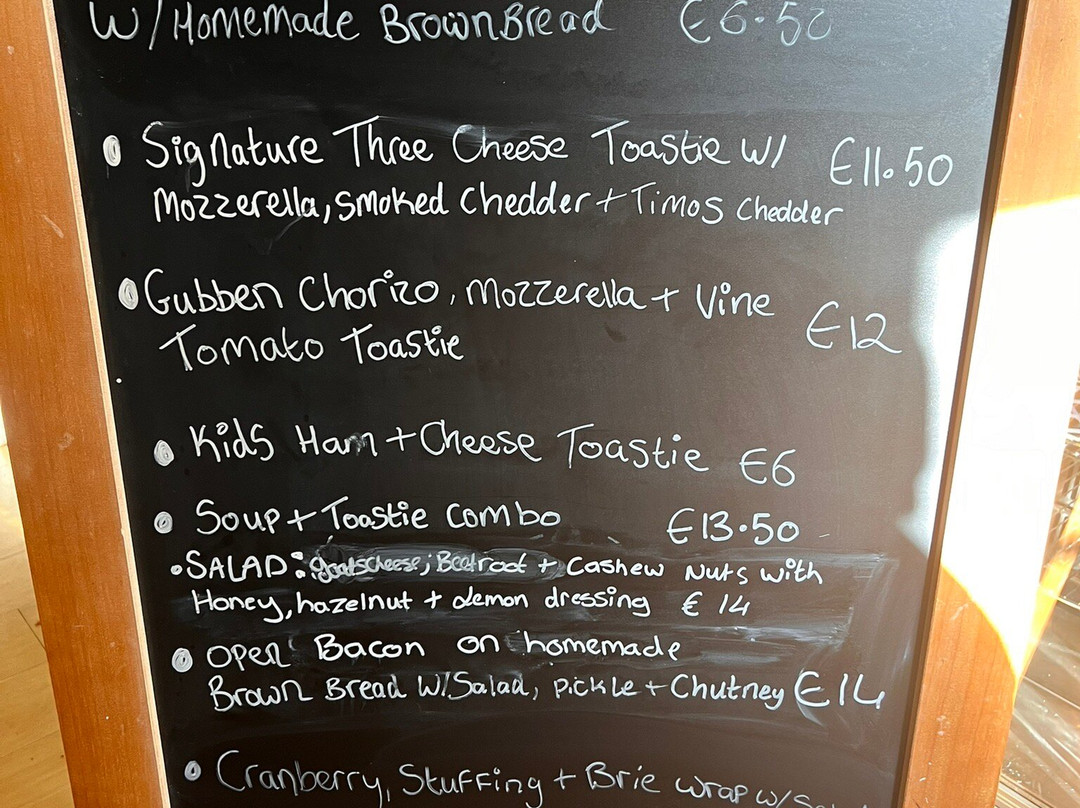 W/Homemade Brown Bread €6.50
• Signature Three Cheese Toastie W/ €11.50
Mozzerella, smoked Chedder + Timos Chedder
• Gubben Chorizo, Mozzerella + Vine
Tomato Toastie €12
• Kids Ham + Cheese Toastie €6
• Soup + Toastie Combo €13.50
• SALAD: goatscheese, Beetroot + Cashew Nuts with
Honey, hazelnut + Lemon dressing € 14
• Open Bacon on homemade
Brown Bread W/Salad, Pickle + Chutney €14
• Cranberry, Stuffing + Brie wrap w/